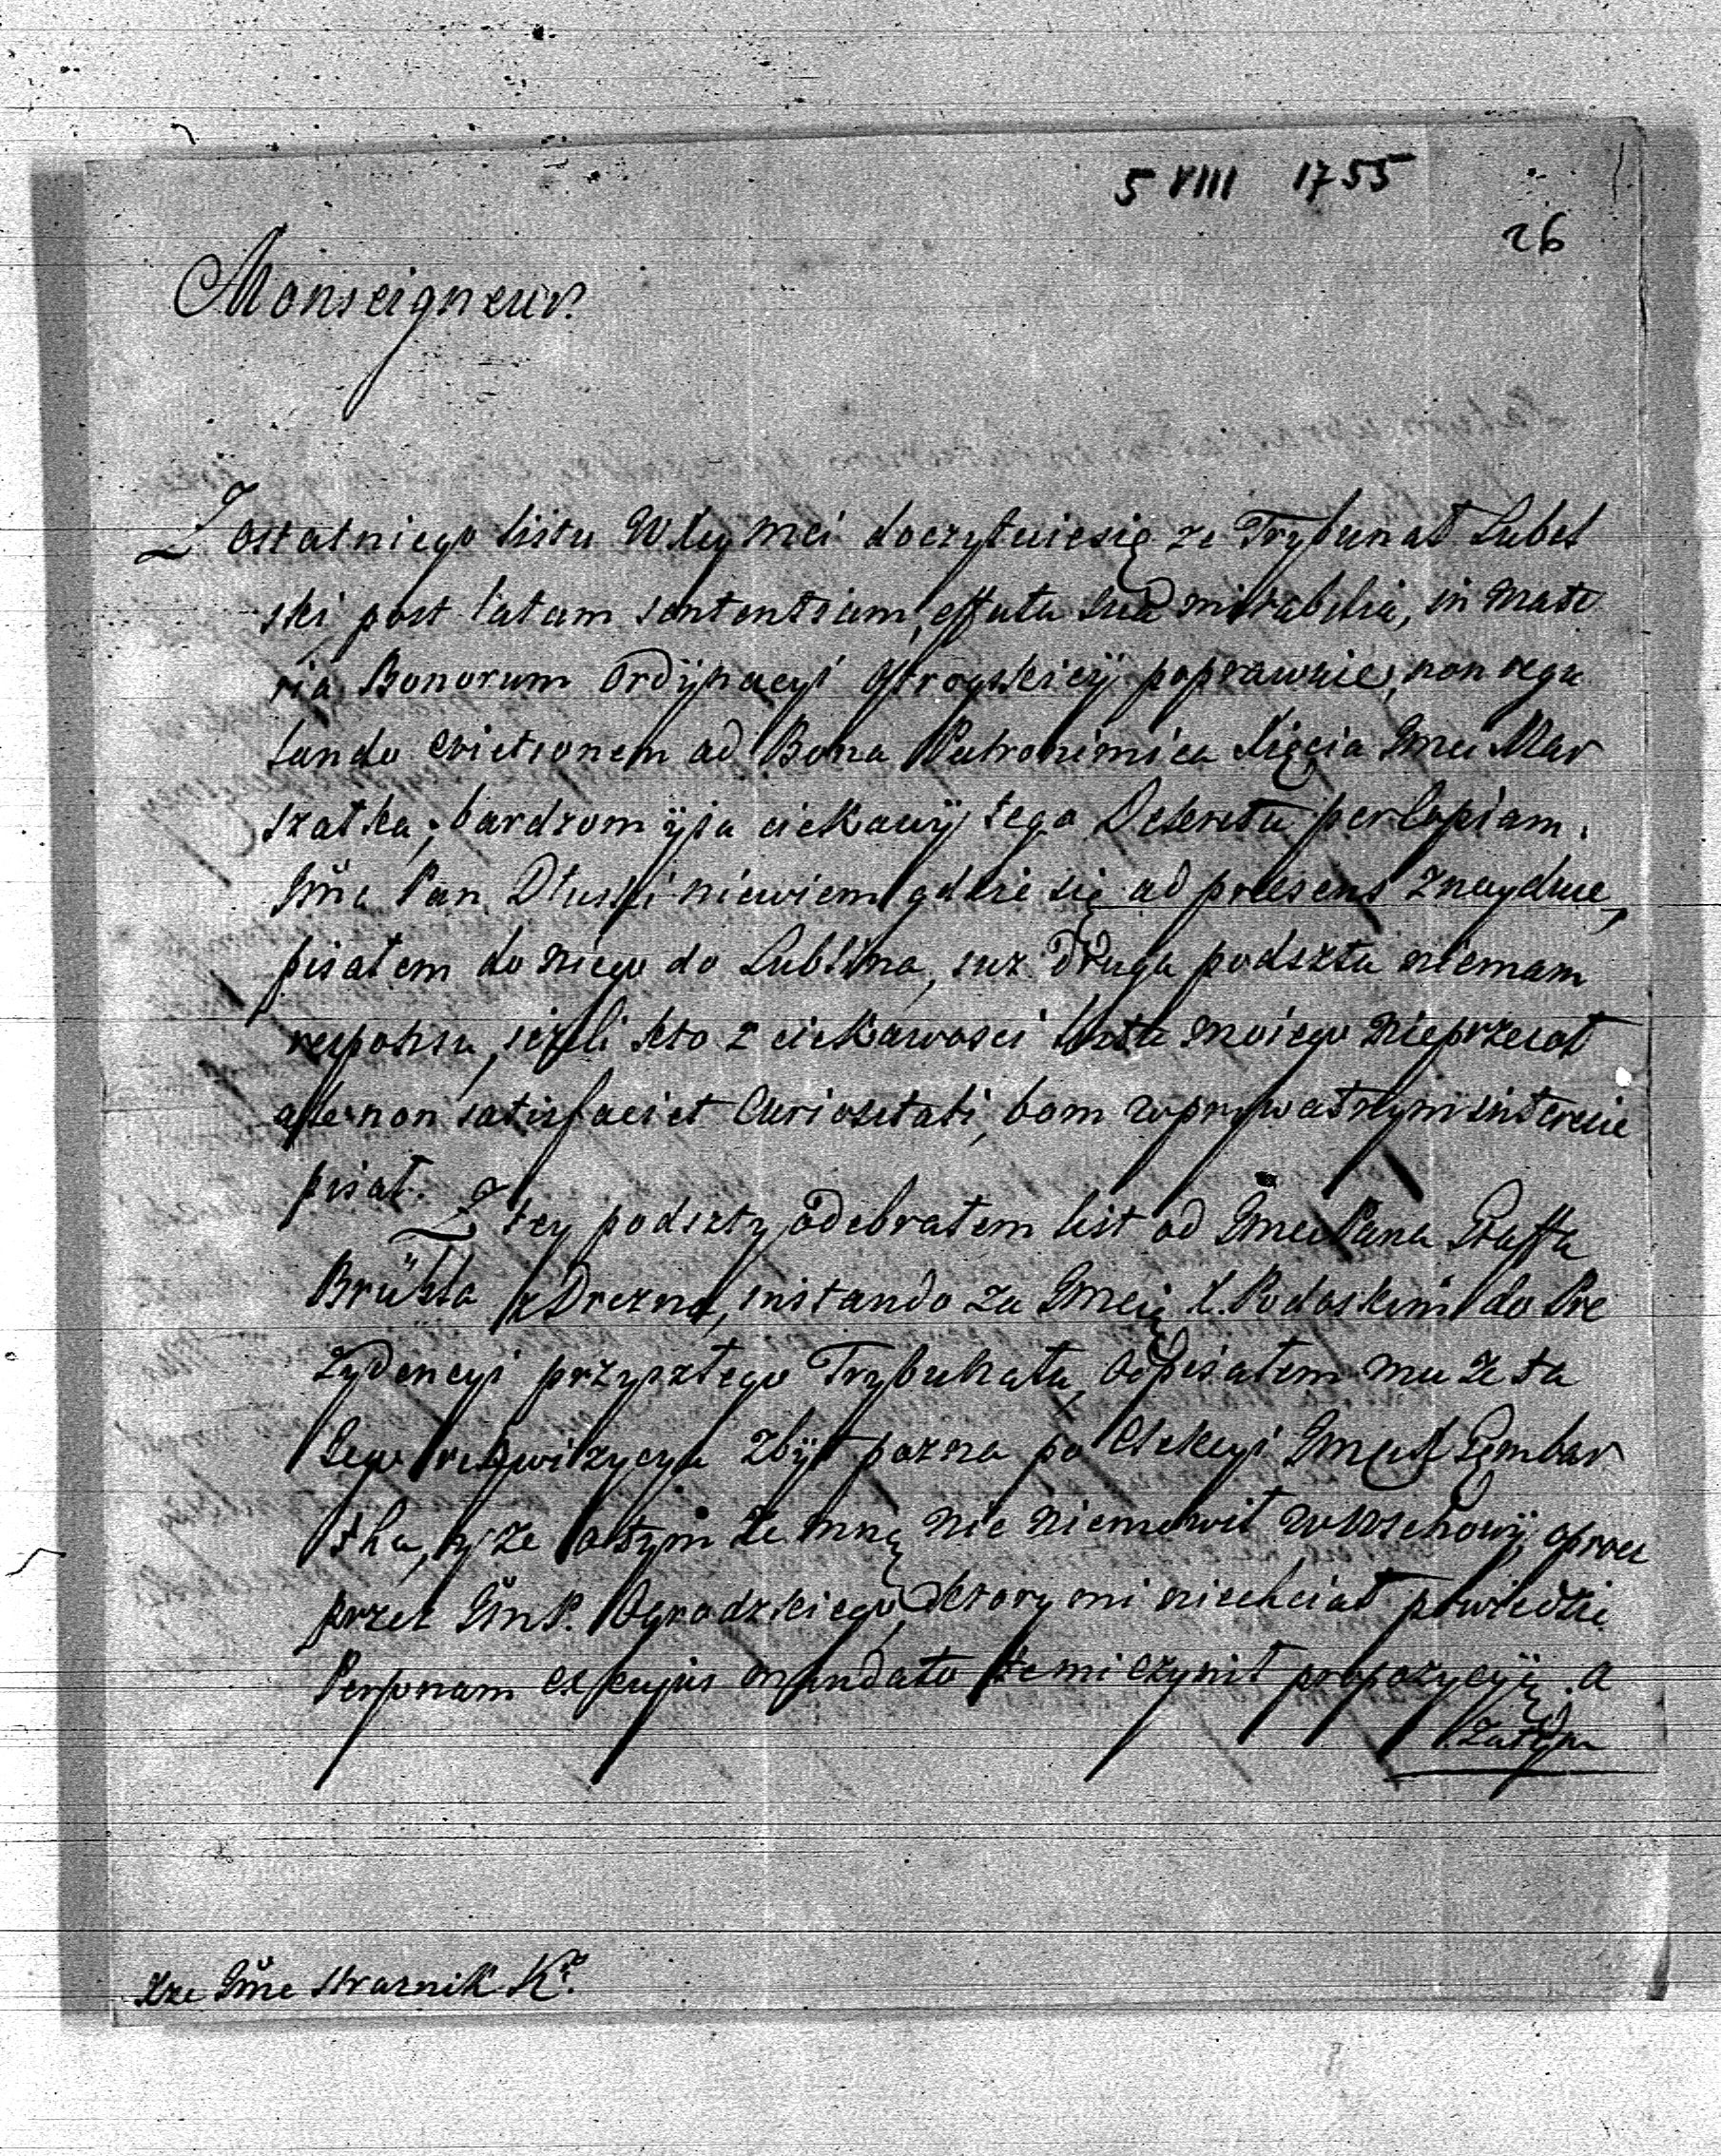 5 VIII 1755
26
Monseigneur.
Z ostatniego listu WXcy Mci doczytuiesię ze Trybunał Lubel
ski post latam sententiam, effata sua mirabilia, in Mate
ria Bonorum Ordÿnacyi Ostrogskieÿ poprawuie, non regu
lando evictionem ad Bona Patrimonica Xięcia Jmci Mar
szałka; bardzom ÿia ciekawÿ tego Dekretu per Copiam.
Jmć Pan Dłuski niewiem gdzie się ad præsens znayduie,
pisałem do niego do Lublina, iuz druga podszta niemam
responsu, iezeli kto z ciekawosci listu moiego nieprzeiął
ale non satisfaciet Curiositati, bom w prywatnym interesie
pisał.
Z tey podszty odebrałem list od Jmci Pana Graffa
Brühla z Drezna, instando za Jmcią X. Podoskim do Pre
zydencyi przyszłego Trybunału, odpisałem mu ze ta
Jego rekwizycya zbÿt pozna po Elekcyi Jmci X Gembar
tha, y ze o tym ze mną nic niemowił w Wschowÿ, oprocz
przez Jm P. Ogrodzkiego, ktory mi niechciał powiedzić
Personam ex cujus mandato te mi czynił propozycyią. a
zatym
Xze Jmć Straznik K?